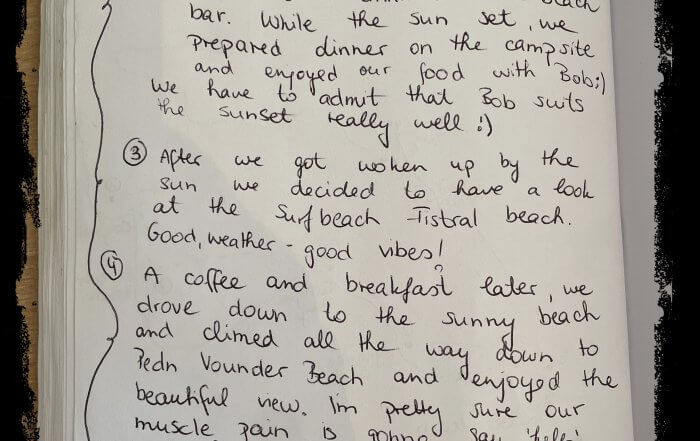 beach
bar. While the sun set, we
prepared dinner on the campsite
and enjoyed our food with Bob;)
We have to admit that Bob suits
the sunset really well :)
③ After we got woken up by the
sun we decided to have a look
at the Surfbeach - Fistral beach.
Good, weather - good vibes!
④ A coffee and breakfast later, we
drove down to the sunny beach
and climed all the way down to
Pedn Vounder Beach and enjoyed the
beautiful view. I'm pretty sure our
muscle pain is gonna say 'hello'